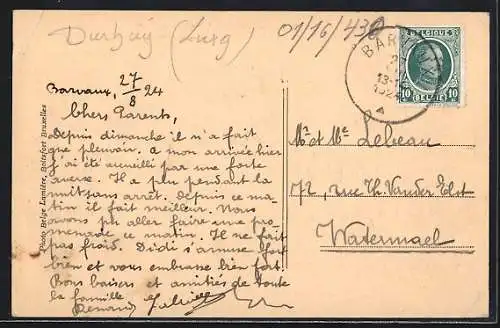 Durbuy (Luxg)
01/16/438
BELGIQUE
BAR
13-
1924
10 BELGIË 10
Barvaux, 27/8 24
Chers Parents,
Depuis dimanche il n'a fait
que pleuvoir. a mon arrivée hier
j'ai été accueilli par une forte
averse. Il a plu pendant la
nuit sans arrêt. Depuis ce ma
tin il fait meilleur. Nous
avons pu aller faire une pro
menade ce matin. Il ne fait
pas froid. Dédi s'amuse fort
bien et vous embrasse bien fort
Bons baisers et amitiés de toute
la famille
Mr et Me Lebeau
72, rue Th. Vander Elst
Watermael
Photo Belge Lumière, Boitsfort Bruxelles